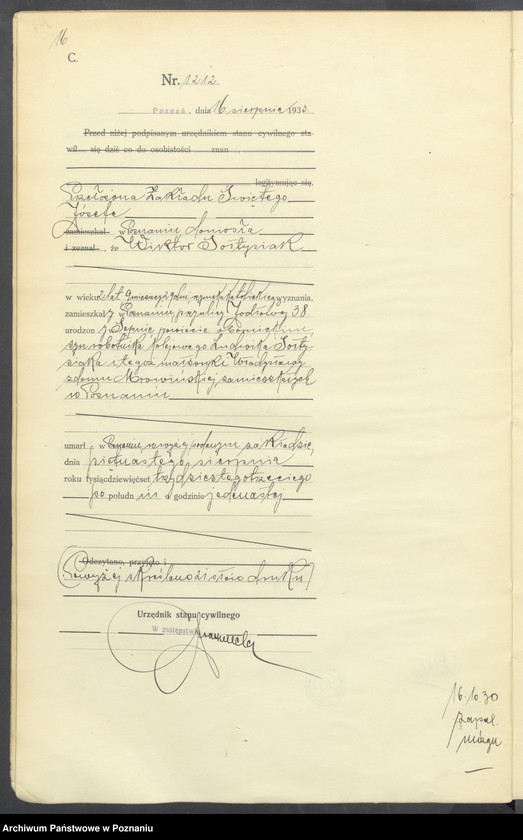 16
C.
Nr. 1212.
Poznań, dnia 16 sierpnia 1933
Przed niżej podpisanym urzędnikiem stanu cywilnego sta-
wił się dziś co do osobistości znan
legitymując się
Przełożona Zakładu Świętego
Józefa
zamieszkał w Poznaniu doniosła
i zeznał, że Wiktor Sołtysiak
w wieku 2 lat 9 miesięcy wyznania,
zamieszkały w Poznaniu przy ulicy Jodłowej 38
urodzon y w powiecie
syn robotnika kolejowego Ludwika Sołty-
siaka i tegoż małżonki Władysławy
z domu Mrowińskiej, zamieszkałych
w Poznaniu
umarł w Poznaniu, w wyżej podanym zakładzie,
dnia piętnastego sierpnia
roku tysiącdziewięćset trzydziestego trzeciego
po połudn iu o godzinie jedenastej
Odczytano, przyjęto i
(Powyżej skreślono słów druku)
Urzędnik stanu cywilnego
W zastępstwie
16.10.30
Zapal.
mózgu
Archiwum Państwowe w Poznaniu